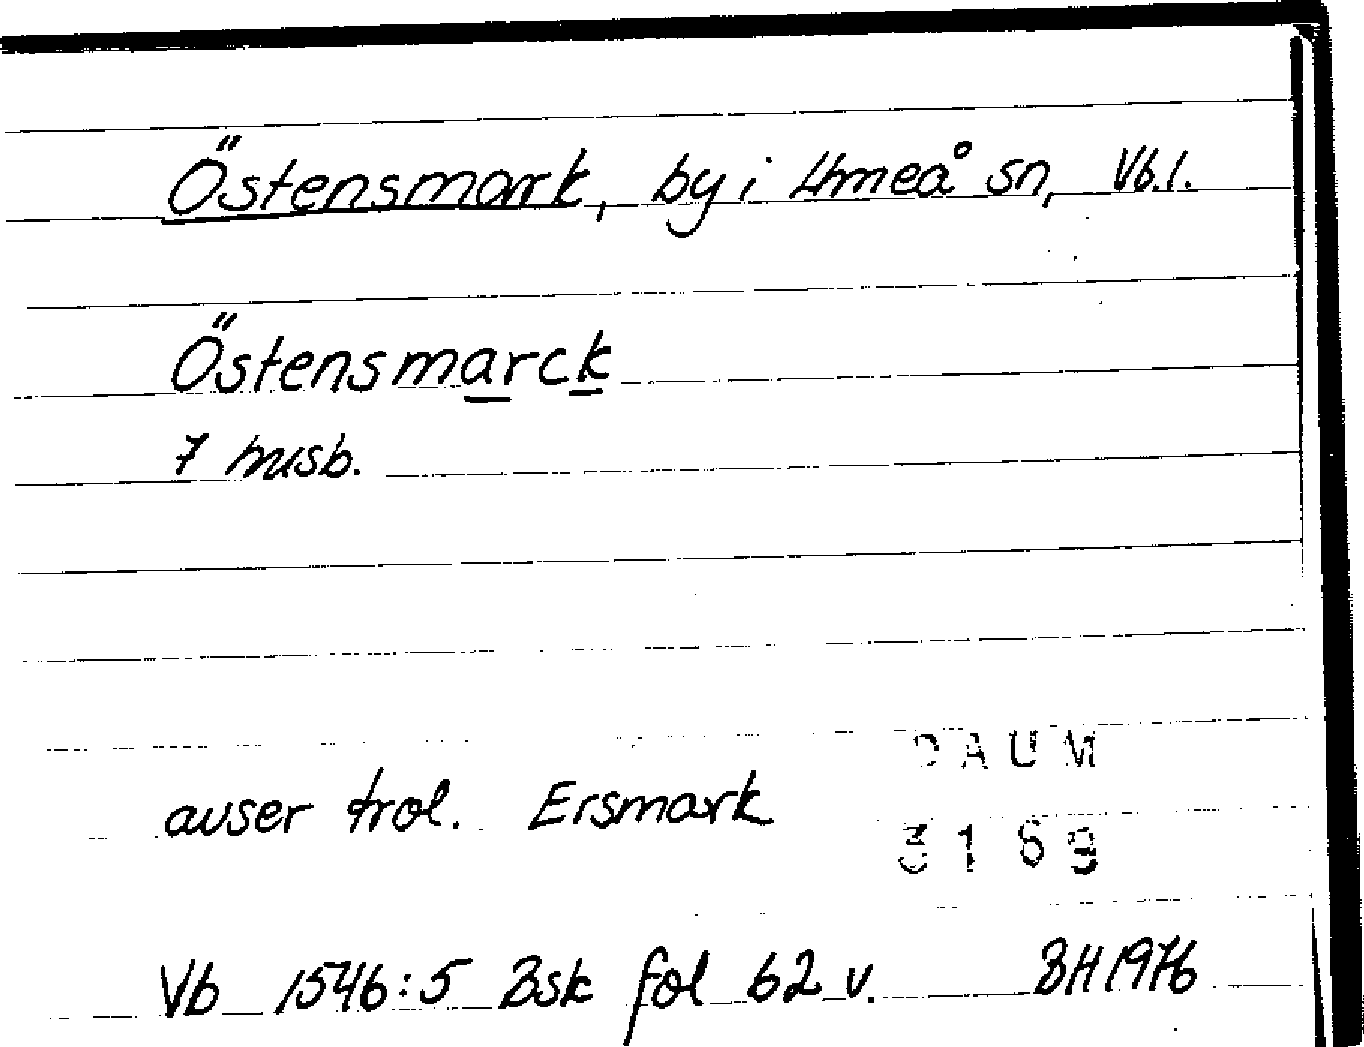 Östensmark, by i Umeå sn, Vb.l.
Östensmarck
7 husb.
DAUM
avser trol. Ersmark
3169
Vb 1546:5 Bsk fol 62 v. BH 1976